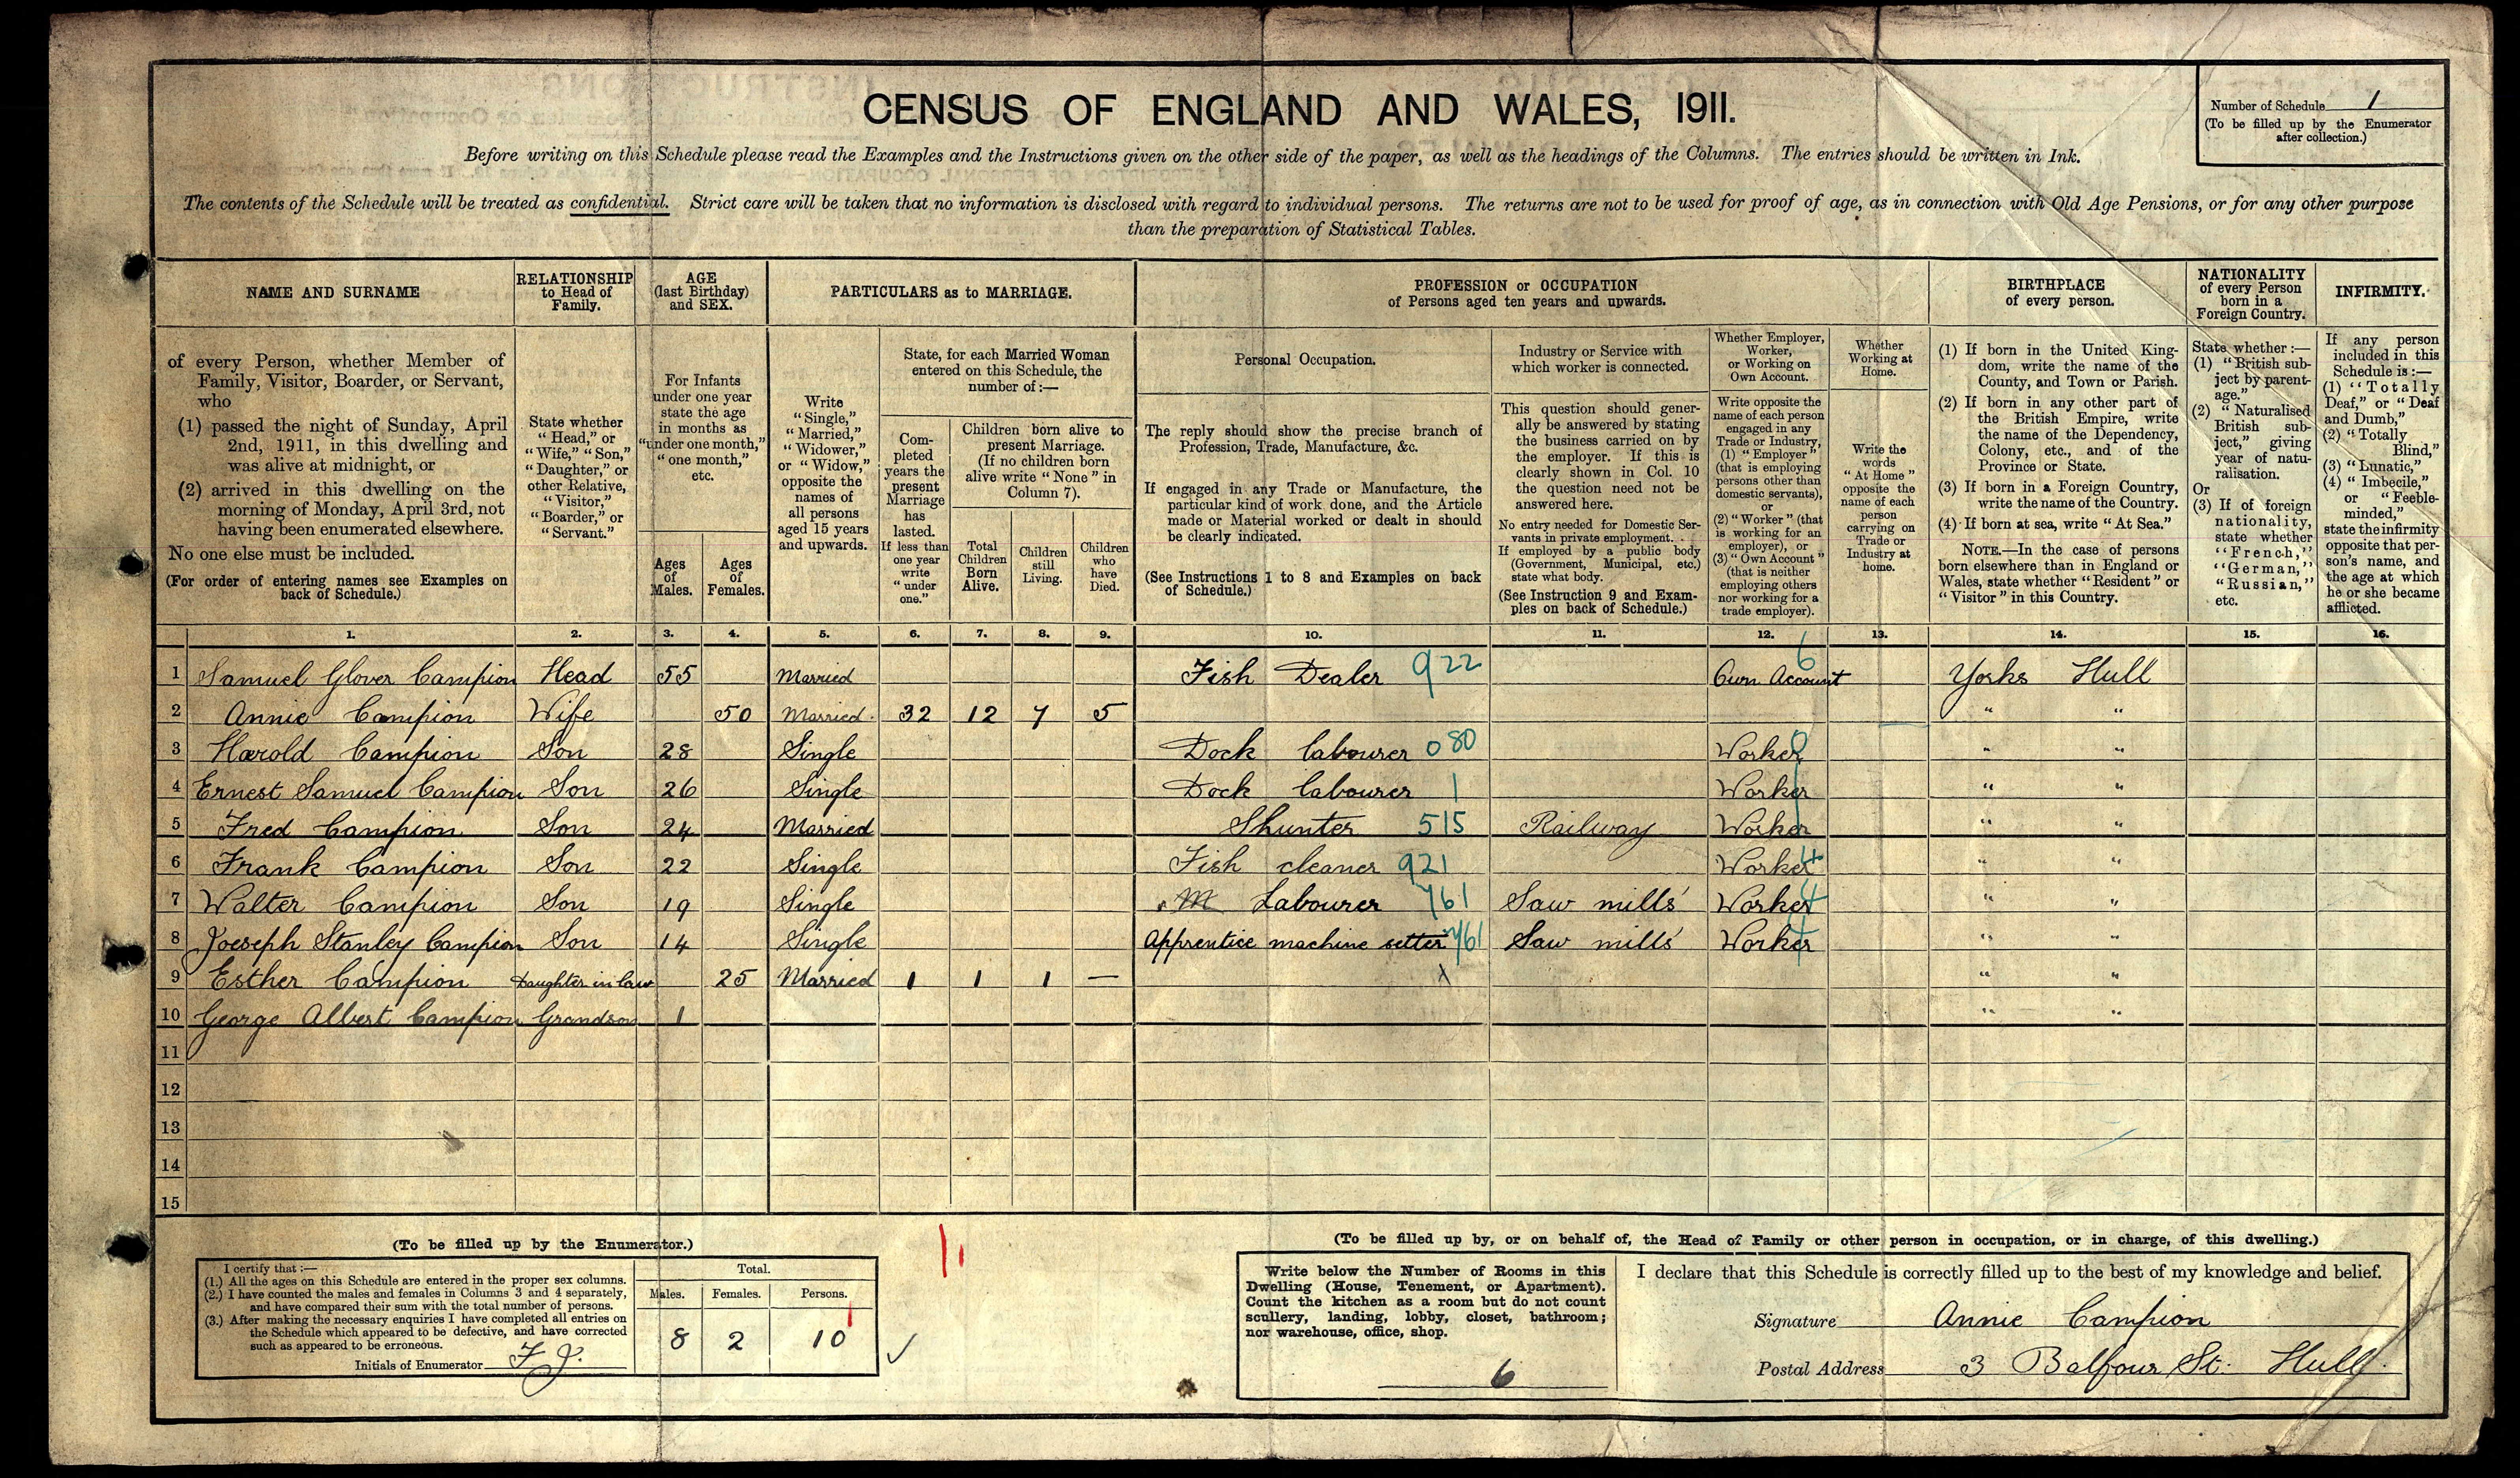 CENSUS OF ENGLAND AND WALES, 1911.
Number of Schedule 1
(To be filled up by the Enumerator
after collection.)
Before writing on this Schedule please read the Examples and the Instructions given on the other side of the paper, as well as the headings of the Columns. The entries should be written in Ink.
The contents of the Schedule will be treated as confidential. Strict care will be taken that no information is disclosed with regard to individual persons. The returns are not to be used for proof of age, as in connection with Old Age Pensions, or for any other purpose
than the preparation of Statistical Tables.
NAME AND SURNAME
of every Person, whether Member of
Family, Visitor, Boarder, or Servant,
who
(1) passed the night of Sunday, April
2nd, 1911, in this dwelling and
was alive at midnight, or
(2) arrived in this dwelling on the
morning of Monday, April 3rd, not
having been enumerated elsewhere.
No one else must be included.
(For order of entering names see Examples on
back of Schedule.)
RELATIONSHIP
to Head of
Family.
State whether
"Head," or
"Wife," "Son,"
"Daughter," or
other Relative,
"Visitor,"
"Boarder," or
"Servant."
AGE
(last Birthday)
and SEX.
For Infants
under one year
state the age
in months as
"under one month,"
"one month,"
etc.
Ages
of
Males.
Ages
of
Females.
PARTICULARS as to MARRIAGE.
Write
"Single,"
"Married,"
"Widower,"
or "Widow,"
opposite the
names of
all persons
aged 15 years
and upwards.
State, for each Married Woman
entered on this Schedule, the
number of:—
Com-
pleted
years the
present
Marriage
has
lasted.
If less than
one year
write
"under
one."
Children born alive to
present Marriage.
(If no children born
alive write "None" in
Column 7).
Total
Children
Born
Alive.
Children
still
Living.
Children
who
have
Died.
PROFESSION or OCCUPATION
of Persons aged ten years and upwards.
Personal Occupation.
The reply should show the precise branch of
Profession, Trade, Manufacture, &c.
If engaged in any Trade or Manufacture, the
particular kind of work done, and the Article
made or Material worked or dealt in should
be clearly indicated.
(See Instructions 1 to 8 and Examples on back
of Schedule.)
Industry or Service with
which worker is connected.
This question should gener-
ally be answered by stating
the business carried on by
the employer. If this is
clearly shown in Col. 10
the question need not be
answered here.
No entry needed for Domestic Ser-
vants in private employment.
If employed by a public body
(Government, Municipal, etc.)
state what body.
(See Instruction 9 and Exam-
ples on back of Schedule.)
Whether Employer,
Worker,
or Working on
Own Account.
Write opposite the
name of each person
engaged in any
Trade or Industry,
(1) "Employer"
(that is employing
persons other than
domestic servants),
or
(2) "Worker" (that
is working for an
employer), or
(3) "Own Account"
(that is neither
employing others
nor working for a
trade employer).
Whether
Working at
Home.
Write the
words
"At Home"
opposite the
name of each
person
carrying on
Trade or
Industry at
home.
BIRTHPLACE
of every person.
(1) If born in the United King-
dom, write the name of the
County, and Town or Parish.
(2) If born in any other part of
the British Empire, write
the name of the Dependency,
Colony, etc., and of the
Province or State.
(3) If born in a Foreign Country,
write the name of the Country.
(4) If born at sea, write "At Sea."
NOTE.—In the case of persons
born elsewhere than in England or
Wales, state whether "Resident" or
"Visitor" in this Country.
NATIONALITY
of every Person
born in a
Foreign Country.
State whether:—
(1) "British sub-
ject by parent-
age."
(2) "Naturalised
British sub-
ject," giving
year of natu-
ralisation.
Or
(3) If of foreign
nationality,
state whether
"French,"
"German,"
"Russian,"
etc.
INFIRMITY.
If any person
included in this
Schedule is:—
(1) "Totally
Deaf," or "Deaf
and Dumb,"
(2) "Totally
Blind,"
(3) "Lunatic,"
(4) "Imbecile,"
or "Feeble-
minded,"
state the infirmity
opposite that per-
son's name, and
the age at which
he or she became
afflicted.
1. 2. 3. 4. 5. 6. 7. 8. 9. 10. 11. 12. 13. 14. 15. 16.
1 Samuel Glover Campion Head 55 Married Fish Dealer 922 Own Account 6 Yorks Hull
2 Annie Campion Wife 50 Married 32 12 7 5 " "
3 Harold Campion Son 28 Single Dock labourer 080 Worker " "
4 Ernest Samuel Campion Son 26 Single Dock labourer 1 Worker " "
5 Fred Campion Son 24 Married Shunter 515 Railway Worker " "
6 Frank Campion Son 22 Single Fish cleaner 921 Worker " "
7 Walter Campion Son 19 Single M Labourer 761 Saw mills Worker " "
8 Joeseph Stanley Campion Son 14 Single Apprentice machine setter 761 Saw mills Worker " "
9 Esther Campion Daughter in law 25 Married 1 1 1 — x " "
10 George Albert Campion Grandson 1 " "
11
12
13
14
15
(To be filled up by the Enumerator.)
I certify that:—
(1.) All the ages on this Schedule are entered in the proper sex columns.
(2.) I have counted the males and females in Columns 3 and 4 separately,
and have compared their sum with the total number of persons.
(3.) After making the necessary enquiries I have completed all entries on
the Schedule which appeared to be defective, and have corrected
such as appeared to be erroneous.
Initials of Enumerator F J.
Total.
Males. Females. Persons.
8 2 10
(To be filled up by, or on behalf of, the Head of Family or other person in occupation, or in charge, of this dwelling.)
Write below the Number of Rooms in this
Dwelling (House, Tenement, or Apartment).
Count the kitchen as a room but do not count
scullery, landing, lobby, closet, bathroom;
nor warehouse, office, shop.
6
I declare that this Schedule is correctly filled up to the best of my knowledge and belief.
Signature Annie Campion
Postal Address 3 Balfour St: Hull.